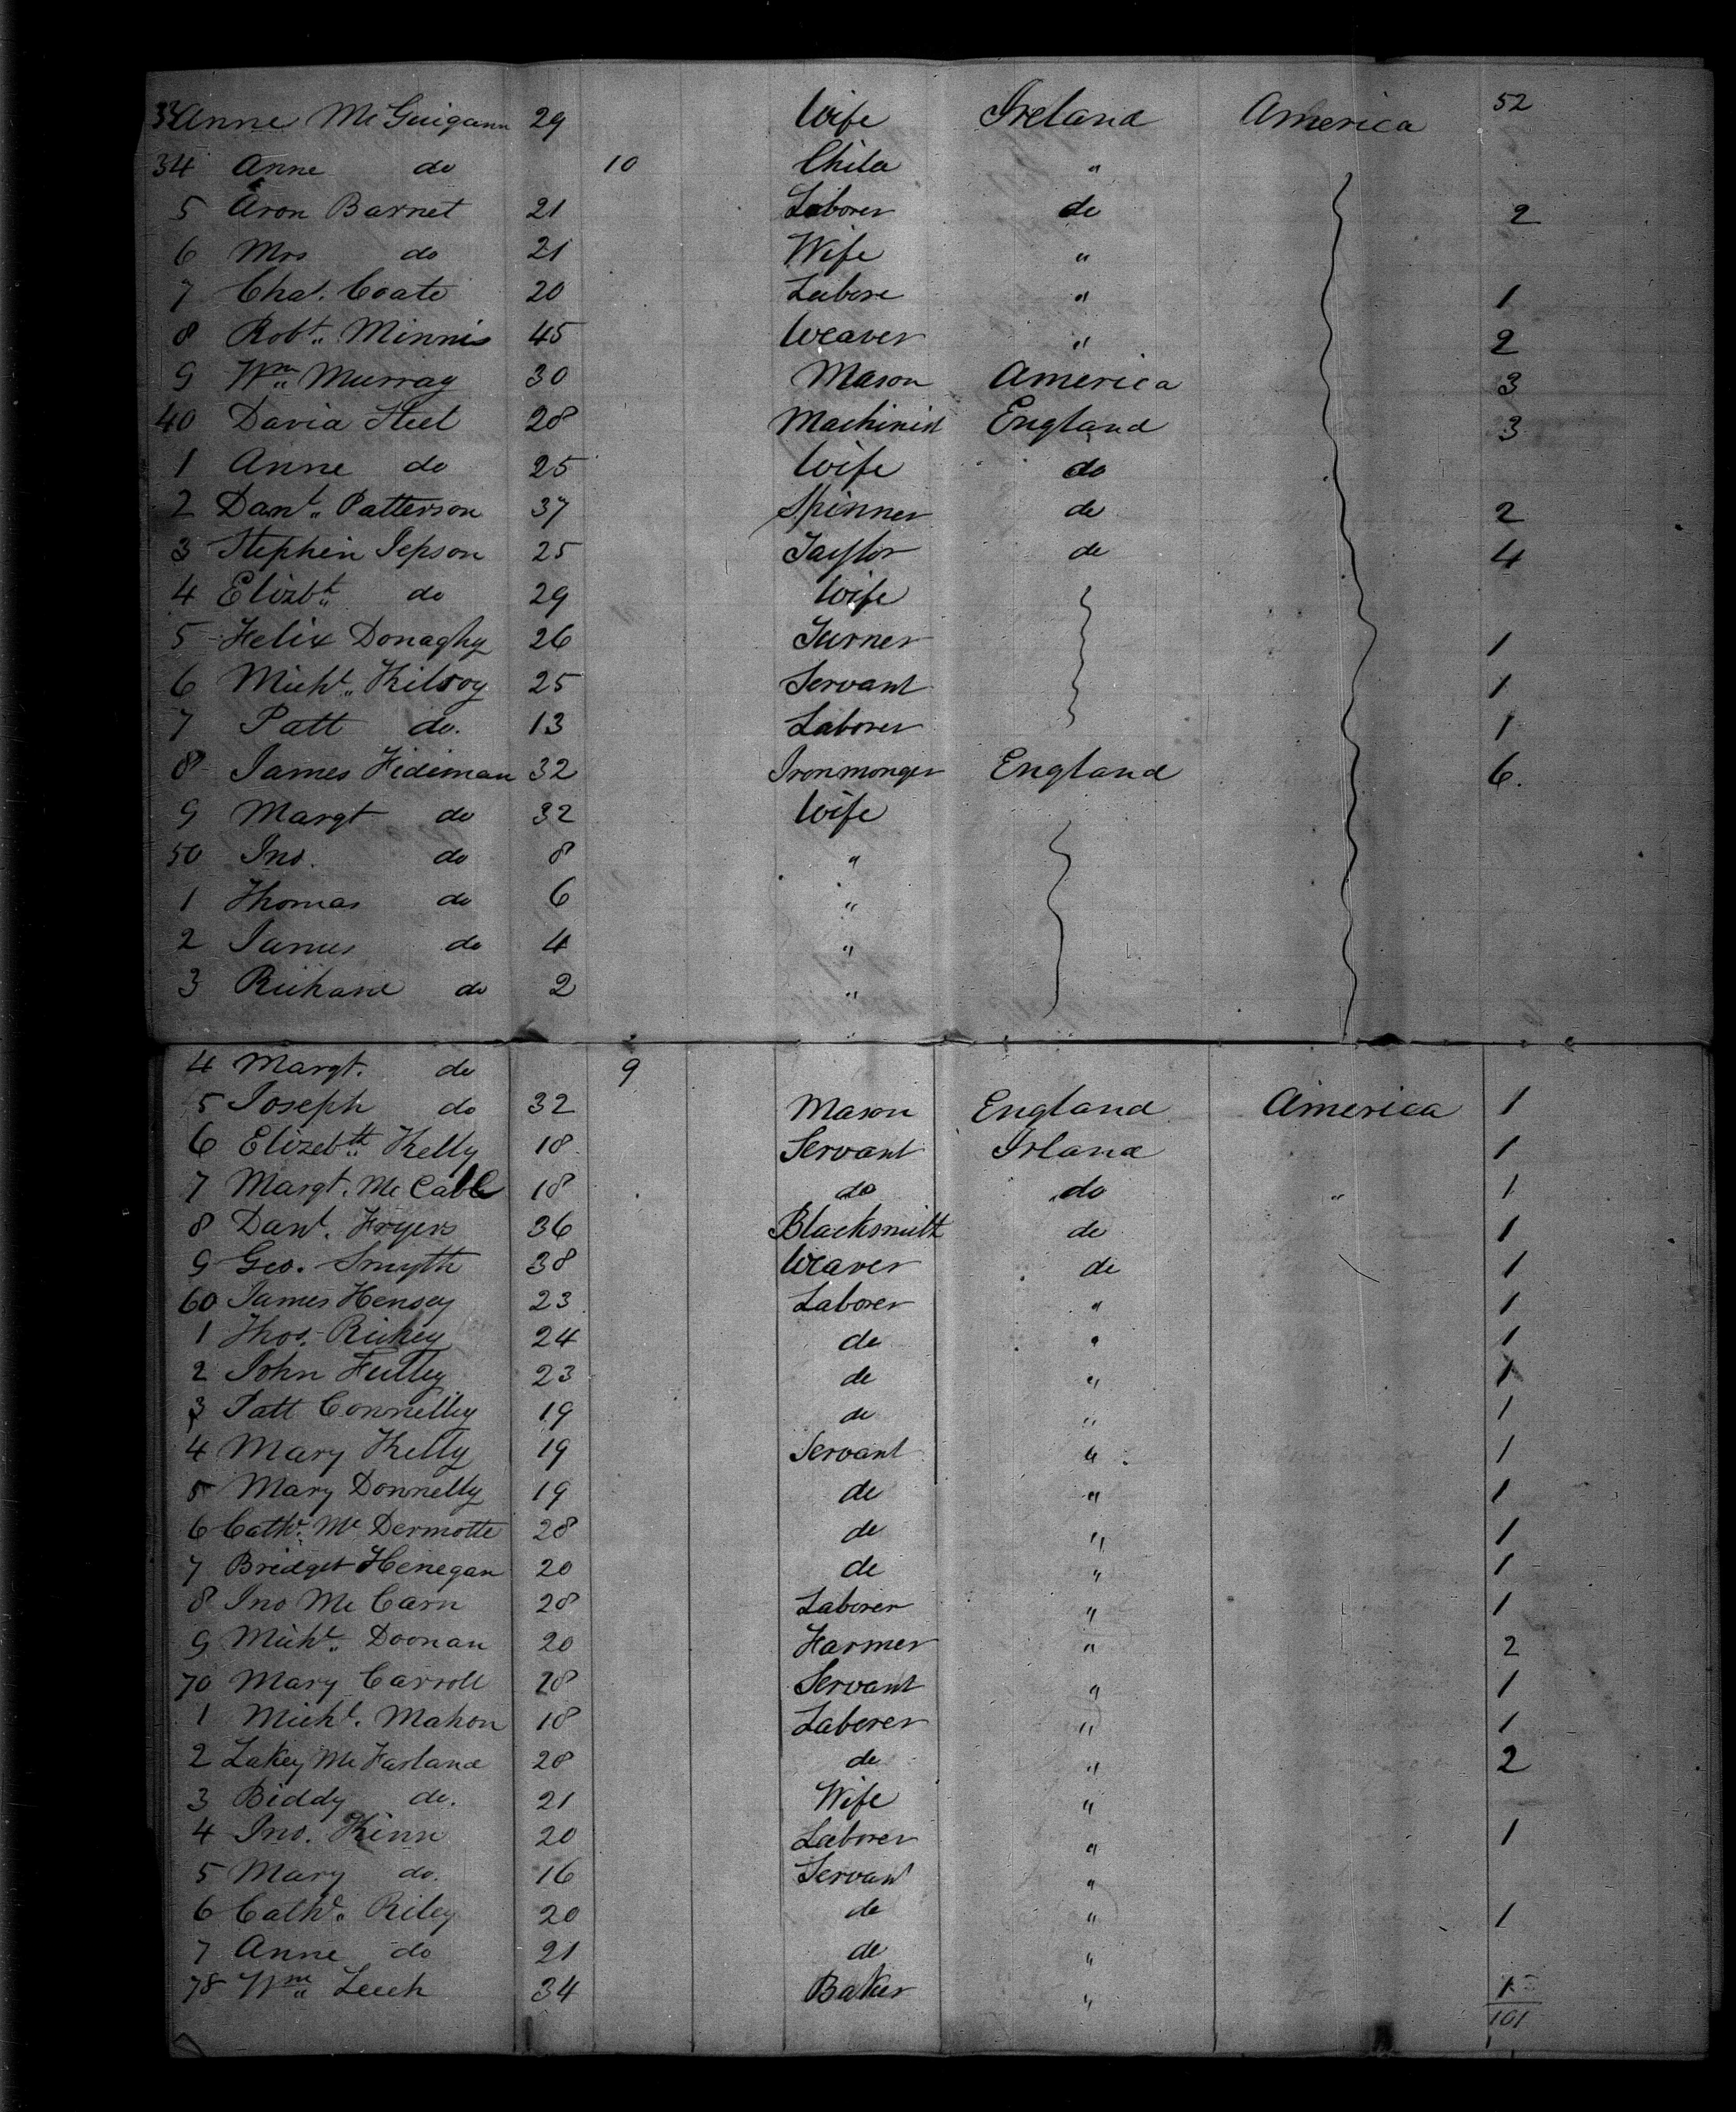 33 Anne McGuigann 29 Wife Ireland America 52
34 Anne do 10 Child "
5 Aron Barnet 21 Laborer do 2
6 Mrs do 21 Wife "
7 Chas. Coate 20 Labore " 1
8 Robt. Minnis 45 Weaver " 2
9 Wm Murray 30 Mason America 3
40 David Steel 28 Machinist England 3
1 Anne do 25 Wife do
2 Danl. Patterson 37 Spinner do 2
3 Stephen Jepson 25 Taylor do 4
4 Elizbt. do 29 Wife
5 Felix Donaghy 26 Turner 1
6 Michl. Kilroy 25 Servant 1
7 Patt do. 13 Laborer 1
8 James Hideman 32 Ironmonger England 6.
9 Margt do 32 Wife
50 Jno. do 8 "
1 Thomas do 6 "
2 James do 4 "
3 Richard do 2 "
4 Margt. do 9
5 Joseph do 32 Mason England America 1
6 Elizebth Kelly 18 Servant Irland 1
7 Margt. McCabe 18 do do " 1
8 Danl. Fryers 36 Blacksmith do 1
9 Geo. Smyth 38 Weaver do 1
60 James Hensey 23 Laborer " 1
1 Thos. Richey 24 do " 1
2 John Fulley 23 do " 1
3 Patt Connelley 19 do " 1
4 Mary Kelly 19 Servant " 1
5 Mary Donnelly 19 do " 1
6 Cathe. McDermotte 28 do " 1
7 Bridget Henegan 20 do " 1
8 Jno McCarn 28 Laborer " 1
9 Michl. Doonan 20 Farmer " 2
70 Mary Carroll 28 Servant " 1
1 Michl. Mahon 18 Laborer " 1
2 Lakey McFarland 28 do " 2
3 Biddy do. 21 Wife "
4 Jno. Kinn 20 Laborer " 1
5 Mary do. 16 Servant "
6 Cathe. Riley 20 do " 1
7 Anne do 21 do "
78 Wm Leech 34 Baker " 1
101